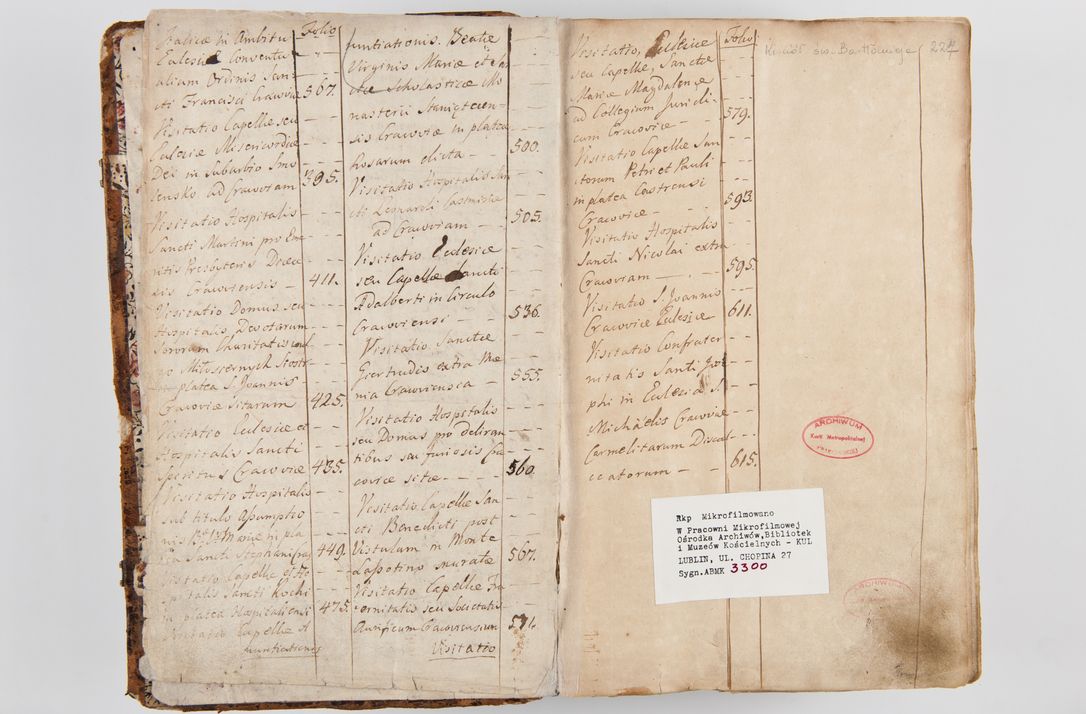 Folio
Italicæ in Ambitu
Eclesiæ Conventu
alium Ordinis San
cti Francisci Cracoviæ 367.
Visitatio Capellæ seu
Eclesiæ Misericordiæ
Dei in Suburbio Smo
lensko ad Cracoviam 395.
Visitatio Hospitalis
Sancti Martini pro
Presbyteris
Cracoviensis 411.
Visitatio Domus seu
Hospitalis Devotarum
Sororum Charitatis
Miłosiernych
platea S. Joannis
Cracoviæ Sitarum 425.
Visitatio Eclesiæ et
Hospitalis Sancti
Spiritus Cracoviæ 435.
Visitatio Hospitalis
sub titulo Assumptio
nis Mariæ in pla
tea Sancti Stephani 449.
Visitatio Capellæ et Ho
spitalis Sancti Rochi
in platea Hospitalensi 475.
Capellæ A
nuntiationis
nuntiationis Beatæ
Virginis Mariæ et San
ctæ Scholasticæ Mo
nasterii Staniętecen-
sis Cracoviæ in platea
Rosarum dicta 500.
Visitatio Hospitalis San
cti Leonardi
ad Cracoviam 505.
Visitatio Eclesiæ
seu Capellæ Sancti
Adalberti in Circulo
Cracoviensi 536.
Visitatio Sanctæ
Giertrudis extra Mœ
nia Cracoviensea 555.
Visitatio Hospitalis
seu Domus pro deliran
tibus seu furiosis Cra
coviæ sitæ 560.
Visitatio Capellæ San
cti Benedicti post
Vistulam in Monte
Lassotino muratæ 567.
Visitatio Capellæ Fra
ternitatis seu Societatis
Aurificum Cracoviensium 571.
Visitatio
Folio
Visitatio Eclesiæ
seu Capellæ Sanctæ
Mariæ Magdalenæ
ad Collegium Juridi
cum Cracoviæ 579.
Visitatio Capellæ San
ctorum Petri et Pauli
in platea Castrensi
Cracoviæ 593.
Visitatio Hospitalis
Sancti Nicolai extra
Cracoviam 595.
Visitatio S. Joannis
Cracoviæ Eclesiæ 611.
Visitatio Confrater
nitatis Santi Jose
phi in Eclesia S.
Michaelis Cracoviæ
Carmelitarum Discal
ceatorum 615.
Kościół św. Bartłomieja 224
ARCHIWUM
Kurii Metropolitalnej
Rkp Mikrofilmowano
W Pracowni Mikrofilmowej
Ośrodka Archiwów,Bibliotek
i Muzeów Kościelnych - KUL
LUBLIN, UL. CHOPINA 27
Sygn.ABMK 3300
ARCHIWUM